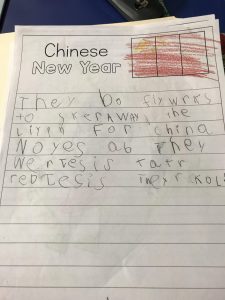 Chinese
New Year
They Do fiywrks
to skerAWAY the
liyin For china
Noyes ab They
Wer
redTesis Theyr KOL